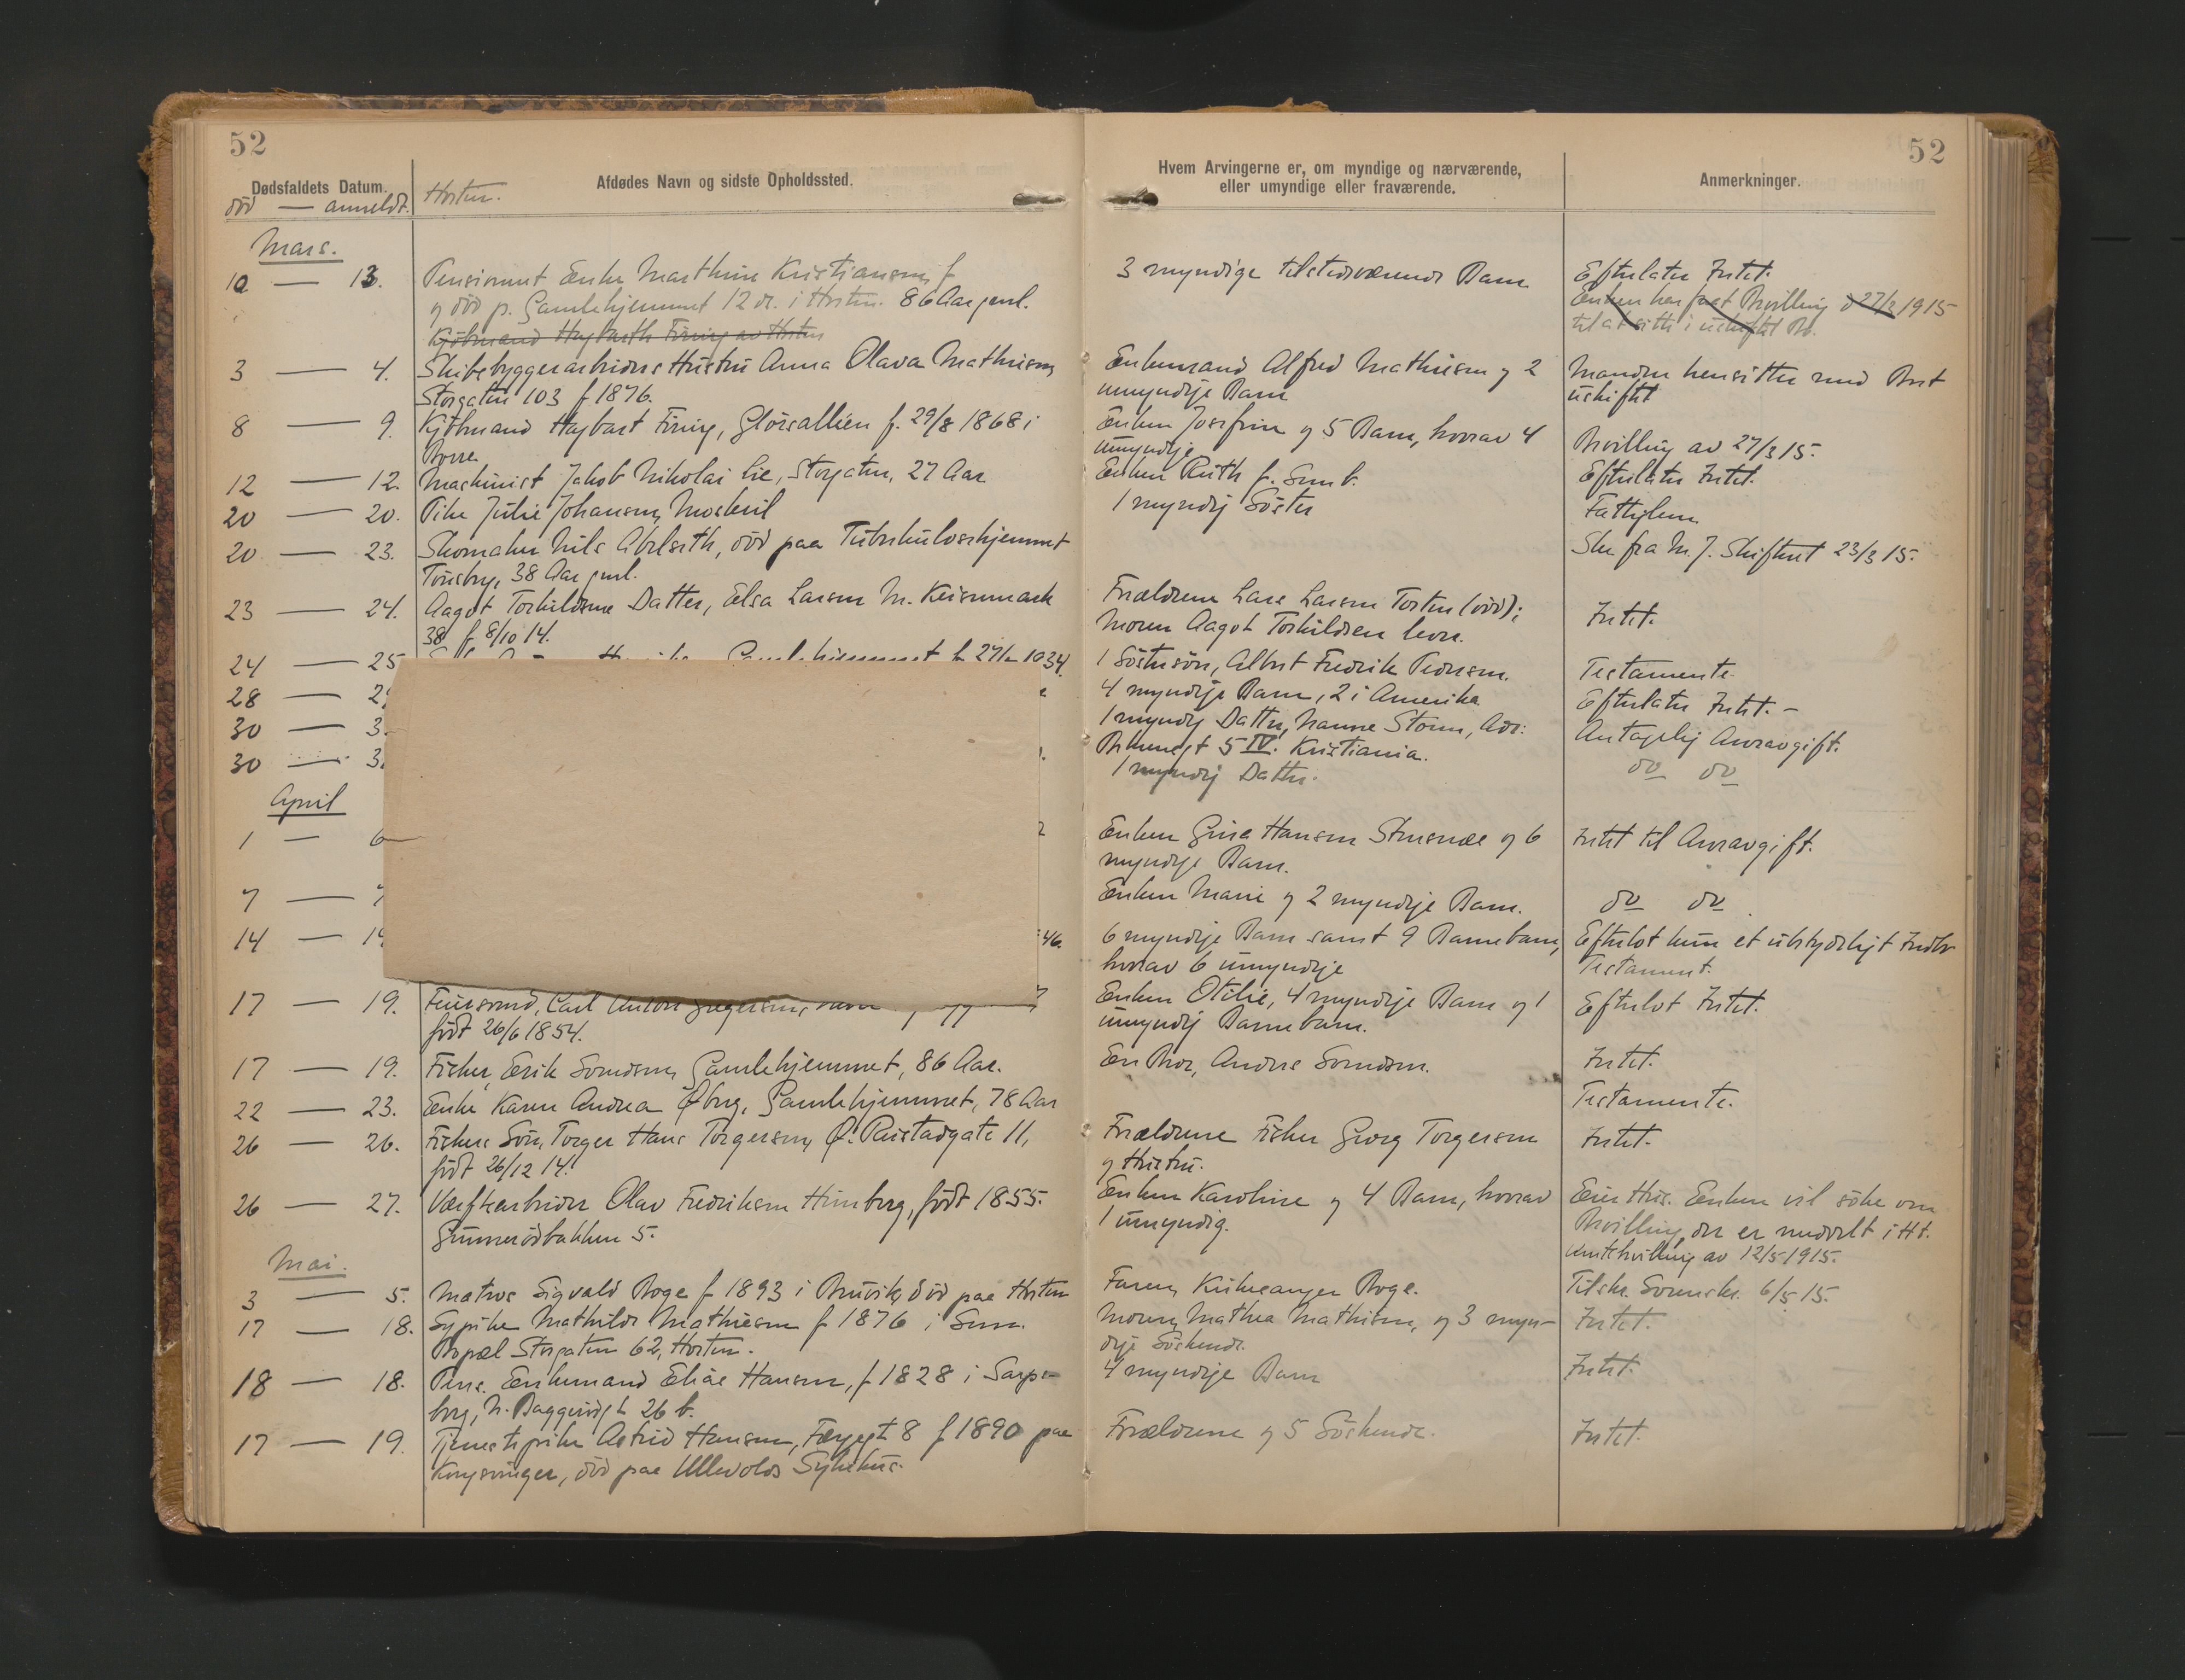 52
52
Dødsfaldets Datum.
død — anmeldt.
Horten.
Afdødes Navn og sidste Opholdssted.
Hvem Arvingerne er, om myndige og nærværende,
eller umyndige eller fraværende.
Anmerkninger.
Mars.
10 — 13. Pensionert Enke Marthine Kristiansen, f
og død p. Gamlehjemmet 12 ds. i Horten. 86 Aar gml.
3 myndige tilstedeværende Barn
Efterlater Intet.
Enken har faat Bevilling d 27/3 1915
til at sitte i uskiftet Bo.
Kjøbmand Hagbarth Firing av Horten
3 — 4. Skibsbyggerarbeiders Hustru Anna Olava Mathiesen,
Storgaten 103 f 1876.
Enkemand Alfred Mathiesen og 2
umyndige Barn
Manden hensitter med Boet
uskiftet
8 — 9. Kjøbmand Hagbart Firing, Glorsalléen f. 29/8 1868 i
Borre
Enken Josefine og 5 Barn, hvorav 4
umyndige
Bevilling av 27/3 15.
12 — 12. Maskinist Jakob Nikolai Lie, Storgaten, 27 Aar
Enken Ruth f. Sem b.
Efterlater Intet.
20 — 20. Pike Julie Johansen, Moskvil
1 myndig Søster
Fattiglem
20 — 23. Skomaker Nils Abelseth, død paa Tuberkulosehjemmet
Tønsberg, 38 Aar gml.
Skr fra M. J. Skifteret 23/3 15.
23 — 24. Aagot Torkildsens Datter, Elsa Larsen N. Keisemark
38 f 8/10 14.
Forældrene Lars Larsen Torten (død);
Moren Aagot Torkildsen lever.
Intet.
24 — 25
1 Søstersøn, Albert Fredrik Pedersen.
Testamente.
28 — 29
4 myndige Barn, 2 i Amerika
Efterlater Intet. –
30 — 3
1 myndig Datter, Nanne Storm, Adr:
5 IV. Kristiania.
Antagelig Arveavgift.
30 — 3
1 myndig Datter.
do do
April
1 — 6
Enken Gina Hansen og 6
myndige Barn.
Intet til Arveavgift.
7 — 7
Enken Marie og 2 myndige Barn.
do do
14 — 19
46.
6 myndige Barn samt 9 Barnebarn,
hvorav 6 umyndige
Efterlot kun et ubetydeligt Indbo
Testament.
17 — 19. Carl Anton Gregersen,
født 26/6 1854.
Enken Otilie, 4 myndige Barn og 1
umyndig Barnebarn.
Efterlot Intet.
17 — 19. Fisker, Erik Svendsen, Gamlehjemmet, 86 Aar.
En Bror, Anders Svendsen.
Intet.
22 — 23. Enke Karen Andrea Øberg, Gamlehjemmet, 78 Aar
Testamente.
26 — 26. Fiskers Søn, Torger Hans Torgersen, Ø. Rustadgate 11,
født 26/12 14.
Forældrene Fisker Georg Torgersen
og Hustru.
Intet.
26 — 27. Værftsarbeider Olav Fredriksen Himberg, født 1855.
Gunnerødbakken 5.
Enken Karoline og 4 Barn, hvorav
1 umyndig.
Eier Hus. Enken vil søke om
Bevilling, der er meddelt i Ht.
Amtsbevilling av 12/5 1915.
Mai.
3 — 5. Matros Sigvald Boge f 1893 i Bruvik, død paa Horten
Faren, Kirkesanger Boge.
Tilskr. Sorenskr. 6/5 15.
17 — 18. Sypike Mathilde Mathiesen f 1876 i Sem.
Bopæl Storgaten 62, Horten.
Moren, Mathea Mathisen, og 3 myn-
dige Søskende.
Intet.
18 — 18. Pens. Enkemand Elias Hansen, f 1828 i Sarps-
borg, N. Baggerødgt 26 b.
4 myndige Barn
Intet.
17 — 19. Tjenestepike Astrid Hansen, Færgegt 8 f 1890 paa
Kongsvinger, død paa Ullevolds Sykehus.
Forældrene og 5 Søskende.
Intet.